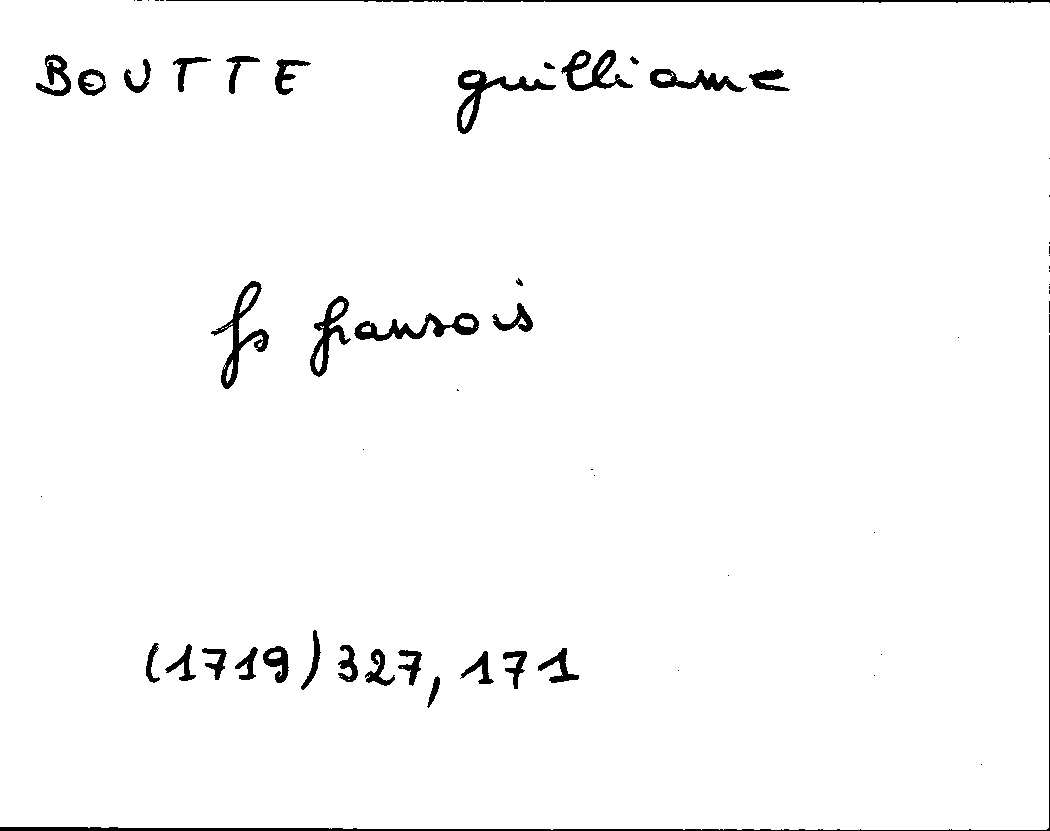 BOUTTE guilliame
fs fransois
(1719) 327, 171